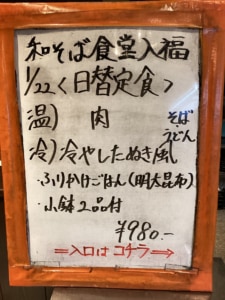 和そば食堂入福
1/22〈日替定食〉
温) 肉 そば
うどん
冷)冷やしたぬき風
・ふりかけごはん(明太昆布)
・小鉢2品付
¥980.-
⇒入口はコチラ→